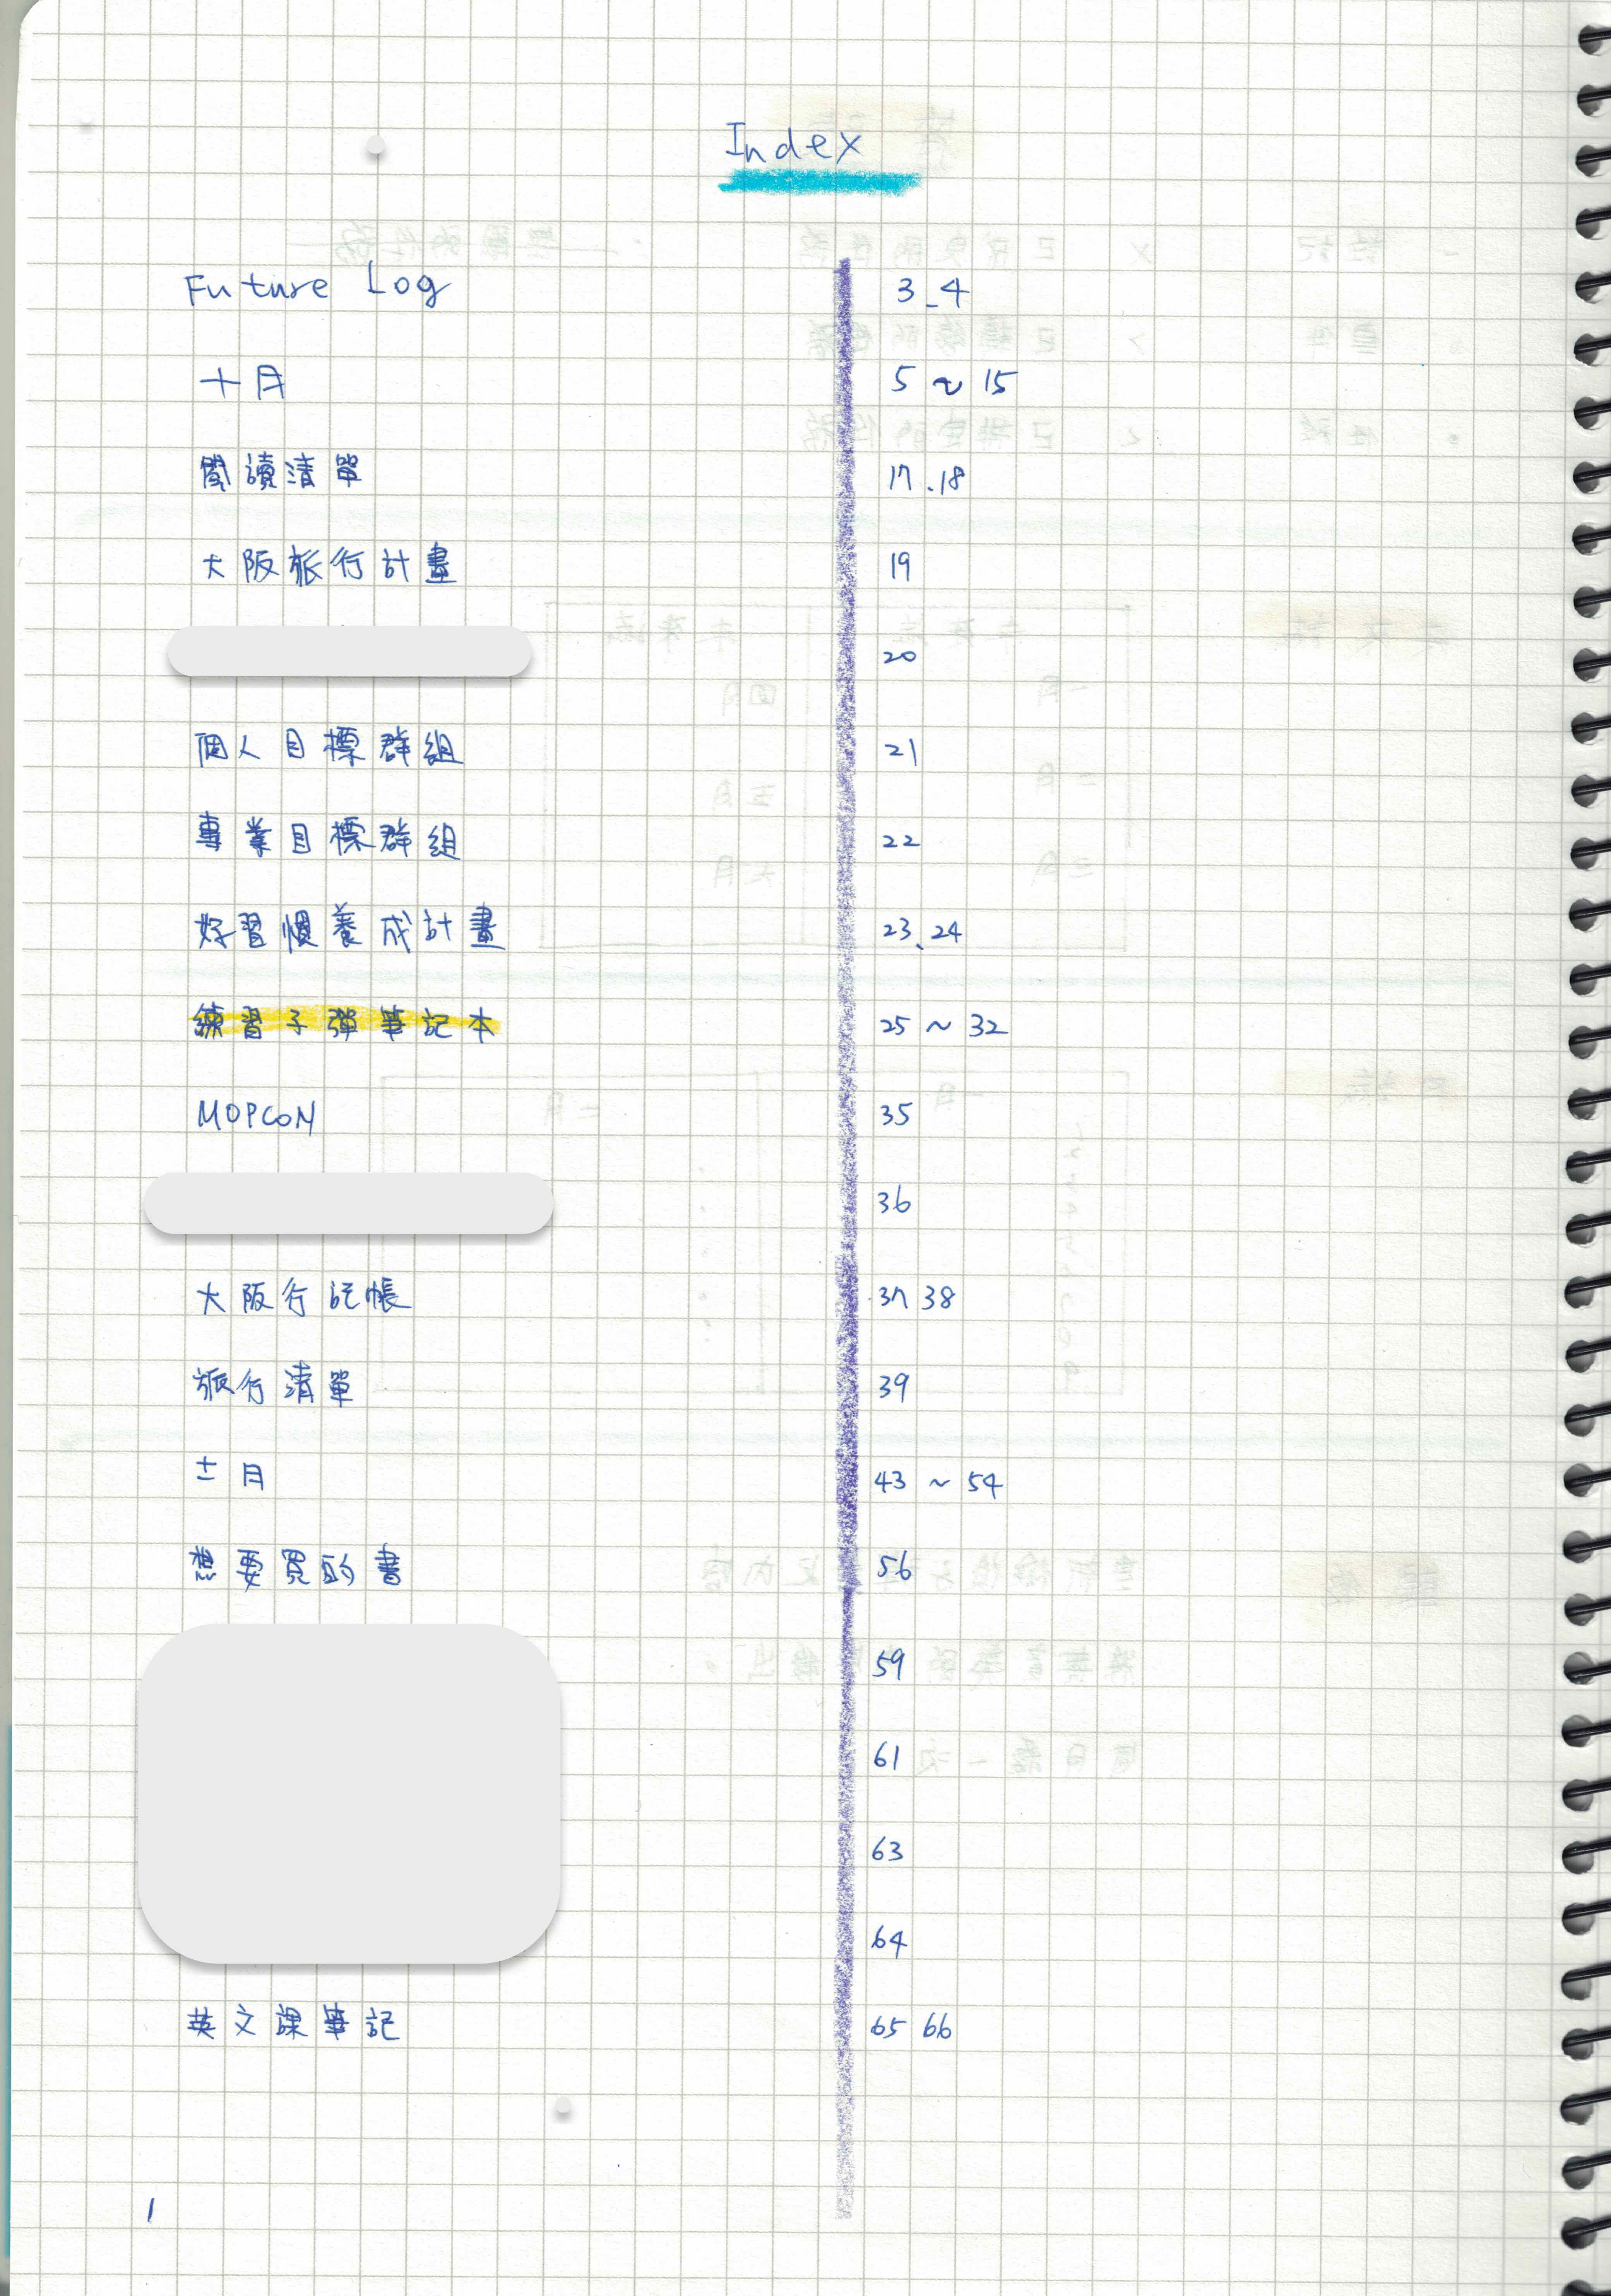 Index
Future Log 3、4
十月 5 ~ 15
閱讀清單 17、18
大阪旅行計畫 19
20
個人目標群組 21
專業目標群組 22
好習慣養成計畫 23、24
練習子彈筆記本 25 ~ 32
MOPCON 35
36
大阪行記帳 37 38
旅行清單 39
十二月 43 ~ 54
想要買的書 56
59
61
63
64
英文課筆記 65 66
1